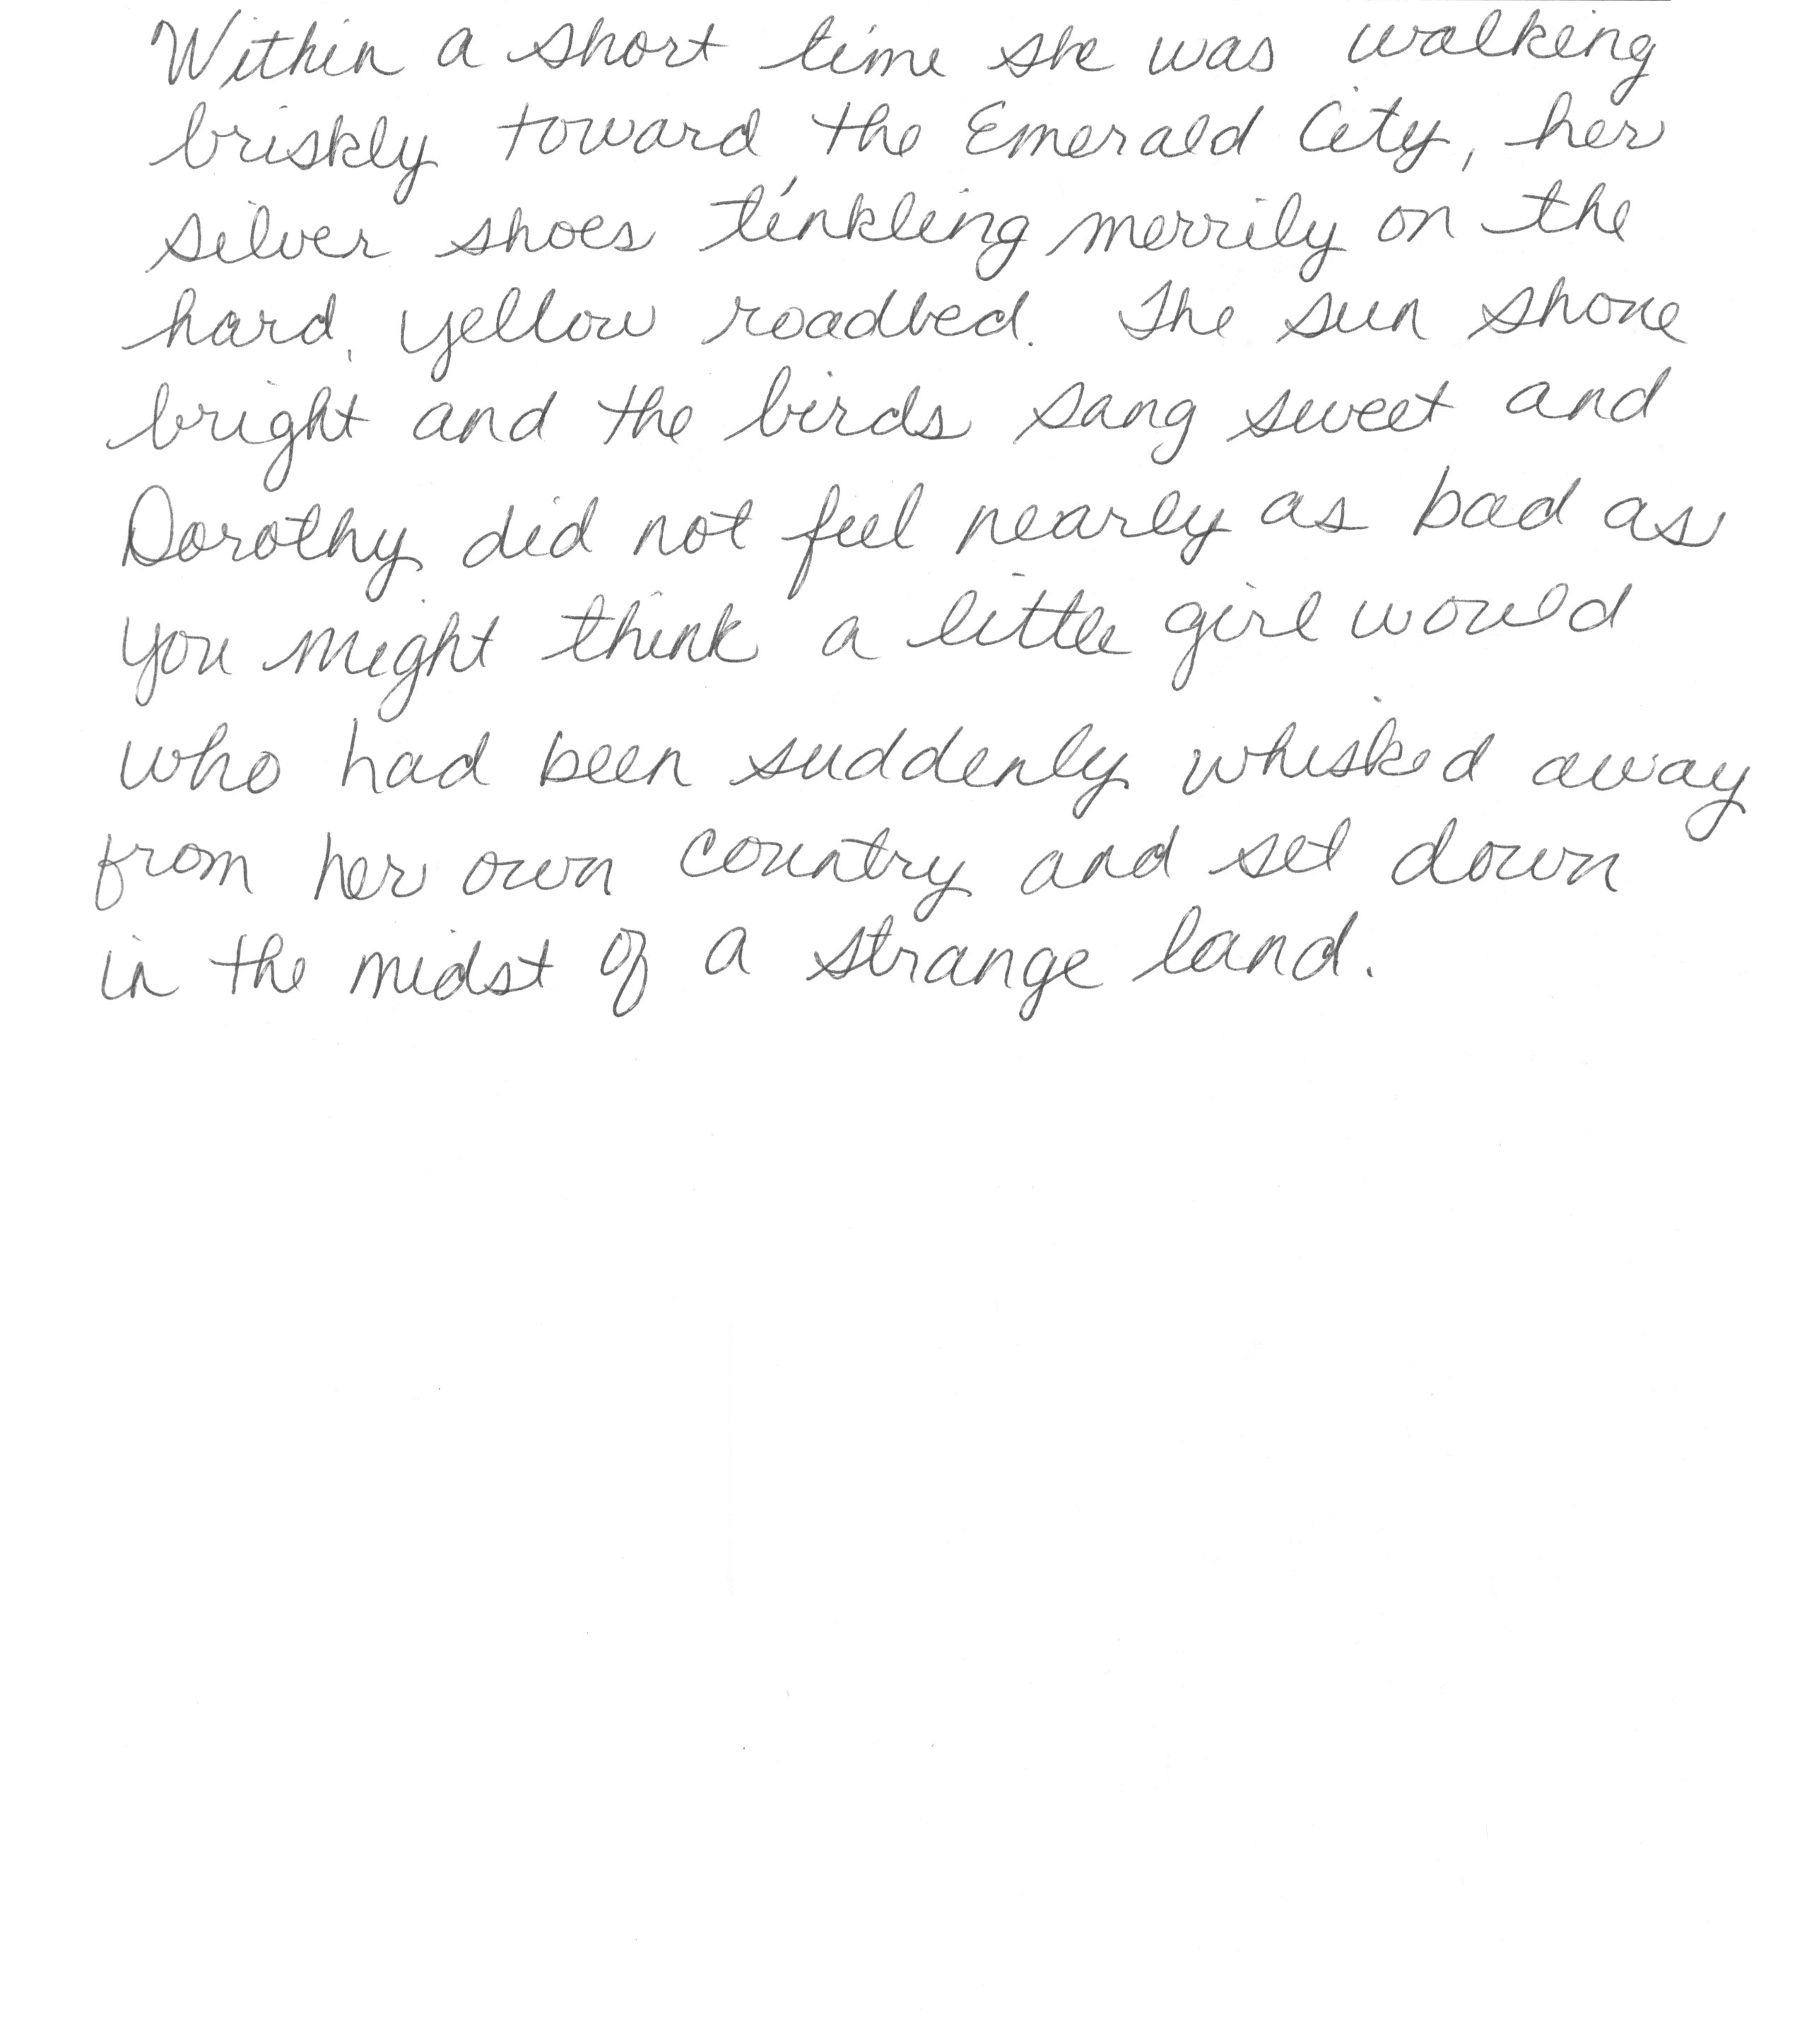 Within a short time she was walking
briskly toward the Emerald City, her
silver shoes tinkling merrily on the
hard, yellow roadbed. The sun shone
bright and the birds sang sweet and
Dorothy did not feel nearly as bad as
you might think a little girl would
who had been suddenly whisked away
from her own country and set down
in the midst of a strange land.